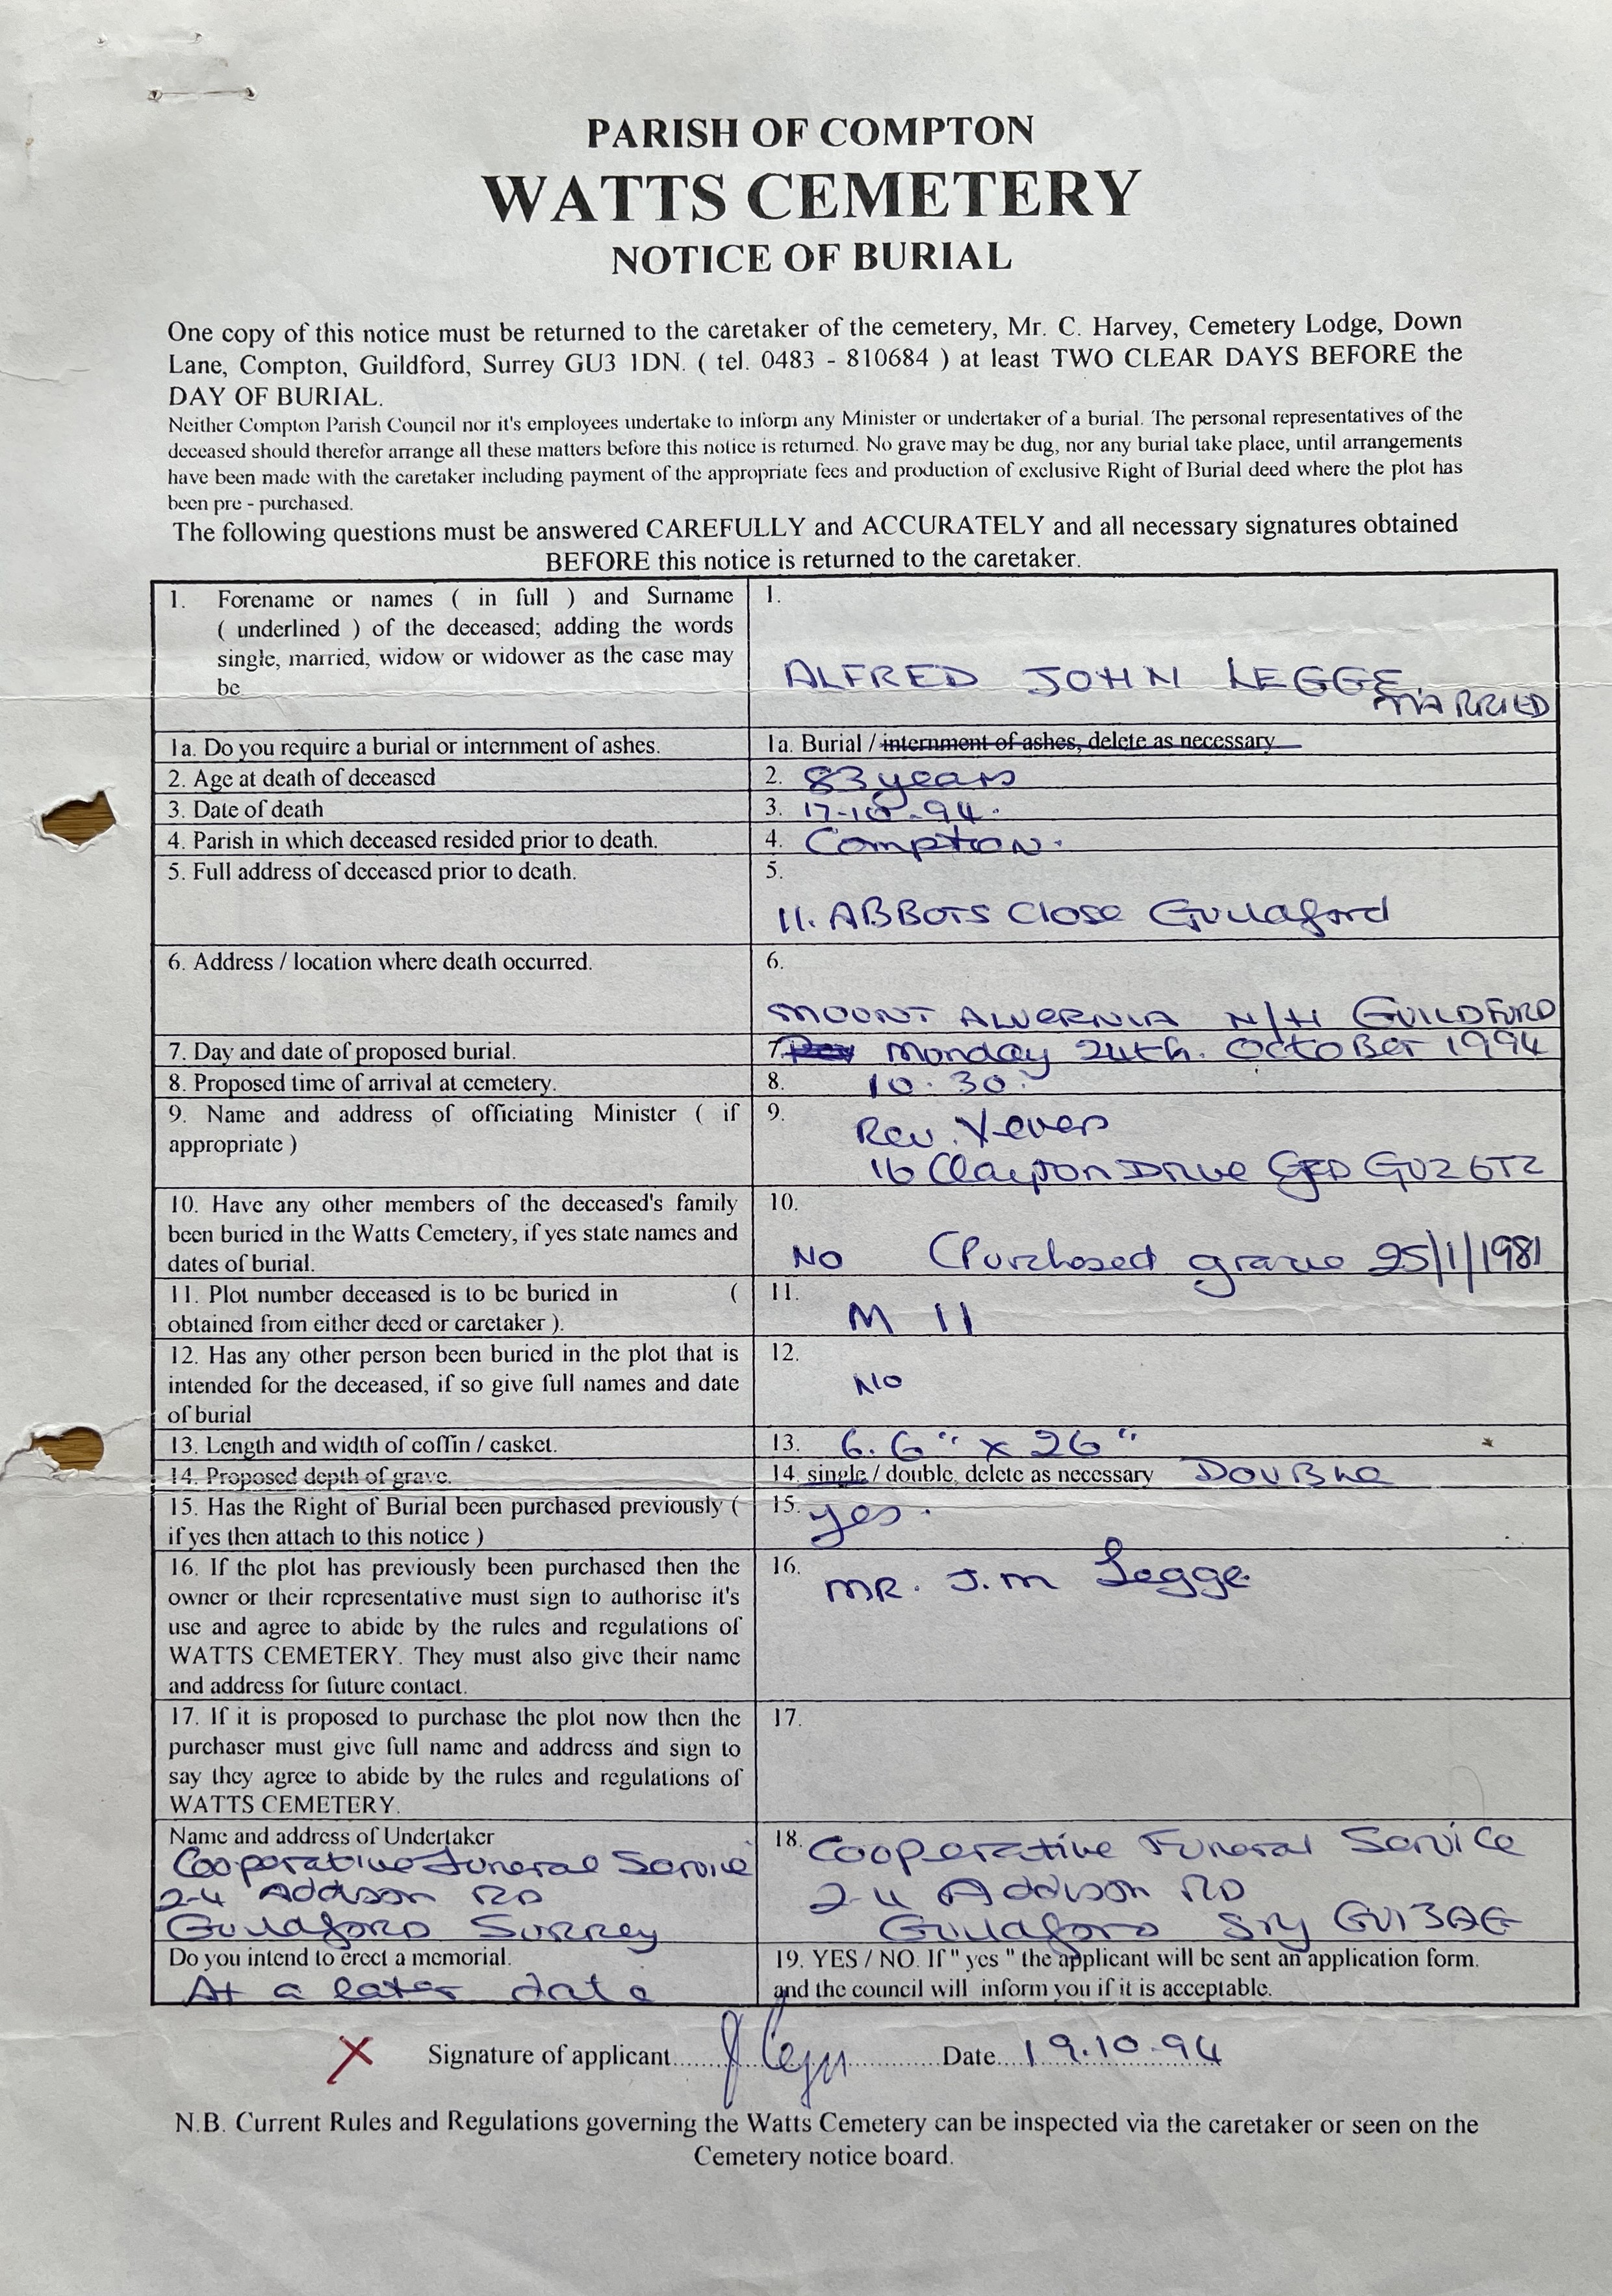 PARISH OF COMPTON
WATTS CEMETERY
NOTICE OF BURIAL
One copy of this notice must be returned to the caretaker of the cemetery, Mr. C. Harvey, Cemetery Lodge, Down
Lane, Compton, Guildford, Surrey GU3 1DN. ( tel. 0483 - 810684 ) at least TWO CLEAR DAYS BEFORE the
DAY OF BURIAL.
Neither Compton Parish Council nor it's employees undertake to inform any Minister or undertaker of a burial. The personal representatives of the
deceased should therefor arrange all these matters before this notice is returned. No grave may be dug, nor any burial take place, until arrangements
have been made with the caretaker including payment of the appropriate fees and production of exclusive Right of Burial deed where the plot has
been pre - purchased.
The following questions must be answered CAREFULLY and ACCURATELY and all necessary signatures obtained
BEFORE this notice is returned to the caretaker.
1. Forename or names ( in full ) and Surname
( underlined ) of the deceased; adding the words
single, married, widow or widower as the case may
be
1.
ALFRED JOHN LEGGE.
MARRIED
1a. Do you require a burial or internment of ashes.
1a. Burial / internment of ashes, delete as necessary
2. Age at death of deceased
2. 83 years
3. Date of death
3. 17-10-94.
4. Parish in which deceased resided prior to death.
4. Compton.
5. Full address of deceased prior to death.
5.
11. ABBOTS Close Guildford
6. Address / location where death occurred.
6.
MOUNT ALVERNIA N/H GUILDFORD
7. Day and date of proposed burial.
7. Monday 24th. OCTOBER 1994
8. Proposed time of arrival at cemetery.
8. 10.30.
9. Name and address of officiating Minister ( if
appropriate )
9.
Rev.
16 Claypon Drive GFD GU2 6TZ
10. Have any other members of the deceased's family
been buried in the Watts Cemetery, if yes state names and
dates of burial.
10.
NO (Purchased grave 25/1/1981
11. Plot number deceased is to be buried in (
obtained from either deed or caretaker ).
11.
M 11
12. Has any other person been buried in the plot that is
intended for the deceased, if so give full names and date
of burial
12.
NO
13. Length and width of coffin / casket.
13. 6.6" x 26"
14. Proposed depth of grave.
14. single / double, delete as necessary DOUBLE
15. Has the Right of Burial been purchased previously (
if yes then attach to this notice )
15. yes.
16. If the plot has previously been purchased then the
owner or their representative must sign to authorise it's
use and agree to abide by the rules and regulations of
WATTS CEMETERY. They must also give their name
and address for future contact.
16.
MR. J.M Legge
17. If it is proposed to purchase the plot now then the
purchaser must give full name and address and sign to
say they agree to abide by the rules and regulations of
WATTS CEMETERY.
17.
Name and address of Undertaker
Cooperative Funeral Service
2-4 Addison RD
Guildford Surrey
18. Cooperative Funeral Service
2-4 Addison RD
Guildford Sry GU1 3QG
Do you intend to erect a memorial.
At a later date
19. YES / NO. If " yes " the applicant will be sent an application form.
and the council will inform you if it is acceptable.
X Signature of applicant.......J Legge..............Date...19.10.94
N.B. Current Rules and Regulations governing the Watts Cemetery can be inspected via the caretaker or seen on the
Cemetery notice board.